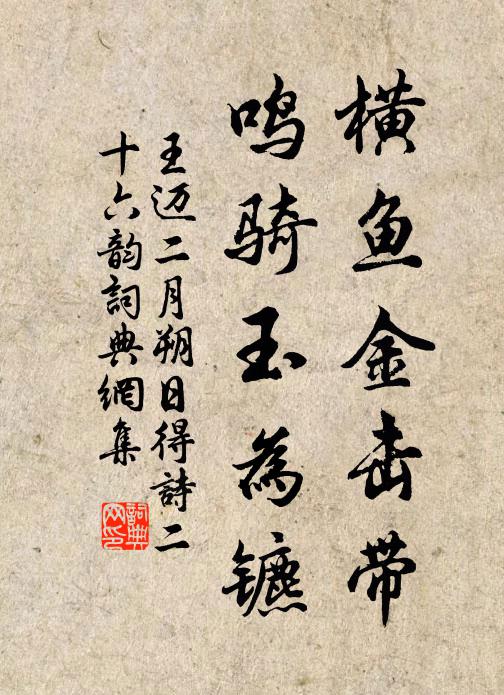 横鱼金击带
鸣骑玉为镳
王迈二月朔日得詩二
十六韵詞典網集
詞典网印